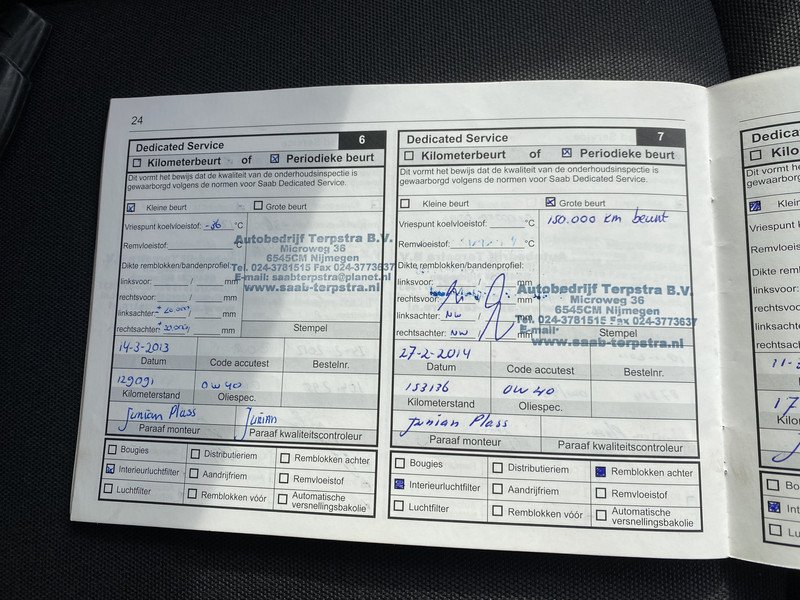 24
Dedicated Service 6
Kilometerbeurt of Periodieke beurt
Dit vormt het bewijs dat de kwaliteit van de onderhoudsinspectie is
gewaarborgd volgens de normen voor Saab Dedicated Service.
Kleine beurt Grote beurt
Vriespunt koelvloeistof: -36 °C
Remvloeistof: °C
Autobedrijf Terpstra B.V.
Microweg 36
6545CM Nijmegen
Tel. 024-3781515 Fax 024-3773637
E-mail: saabterpstra@planet.nl
www.saab-terpstra.nl
Dikte remblokken/bandenprofiel:
linksvoor: / mm
rechtsvoor: / mm
linksachter: ± 20.000 / mm
rechtsachter: ± 20.000 / mm
Stempel
14-3-2013
Datum Code accutest Bestelnr.
129091 0W40
Kilometerstand Oliespec.
Junian Plass Junian
Paraaf monteur Paraaf kwaliteitscontroleur
Bougies Distributieriem Remblokken achter
Interieurluchtfilter Aandrijfriem Remvloeistof
Luchtfilter Remblokken vóór Automatische
versnellingsbakolie
Dedicated Service 7
Kilometerbeurt of Periodieke beurt
Dit vormt het bewijs dat de kwaliteit van de onderhoudsinspectie is
gewaarborgd volgens de normen voor Saab Dedicated Service.
Kleine beurt Grote beurt
Vriespunt koelvloeistof: °C
150.000 km beurt
Remvloeistof: °C
Dikte remblokken/bandenprofiel:
linksvoor: mm
rechtsvoor: mm
linksachter: NW / mm
rechtsachter: NW / mm
Autobedrijf Terpstra B.V.
Microweg 36
6545CM Nijmegen
Tel. 024-3781515 Fax 024-3773637
E-mail-
Stempel
www.saab-terpstra.nl
27-2-2014
Datum Code accutest Bestelnr.
153136 0W40
Kilometerstand Oliespec.
Junian Plass
Paraaf monteur Paraaf kwaliteitscontroleur
Bougies Distributieriem Remblokken achter
Interieurluchtfilter Aandrijfriem Remvloeistof
Luchtfilter Remblokken vóór Automatische
versnellingsbakolie
Dedica
Kilo
Dit vormt
gewaarb
Klein
Vriespunt
Remvloei
Dikte rem
linksvoor:
rechtsvoor
linksachter
rechtsach
11-
Da
17
Kilo
Bo
Int
Lu